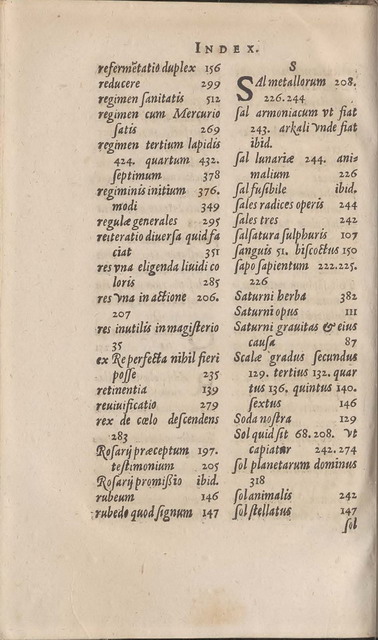 INDEX.
refermētatio duplex 156
reducere 299
regimen ſanitatis 512
regimen cum Mercurio
ſatis 269
regimen tertium lapidis
424. quartum 432.
ſeptimum 378
regiminis initium 376.
modi 349
regulæ generales 295
reiteratio diuerſa quid fa
ciat 351
res vna eligenda liuidi co
loris 285
res vna in actione 206.
207
res inutilis in magiſterio
35
ex Re perfecta nihil fieri
poſſe 235
retinentia 139
reuiuificatio 279
rex de cœlo deſcendens
283
Roſarij præceptum 197.
teſtimonium 205
Roſarij promiſſio ibid.
rubeum 146
rubedo quod ſignum 147
S
SAl metallorum 208.
226.244
ſal armoniacum vt fiat
243. arkali vnde fiat
ibid.
ſal lunariæ 244. ani-
malium 226
ſal fuſibile ibid.
ſales radices operis 244
ſales tres 242
ſalſatura ſulphuris 107
ſanguis 51. biſcoctus 150
ſapo ſapientum 222.225.
226
Saturni herba 382
Saturni opus 111
Saturni grauitas & eius
cauſa 87
Scalæ gradus ſecundus
129. tertius 132. quar
tus 136. quintus 140.
ſextus 146
Soda noſtra 129
Sol quid ſit 68.208. vt
capiatur 242.274
ſol planetarum dominus
318
ſol animalis 242
ſol ſtellatus 147
ſol